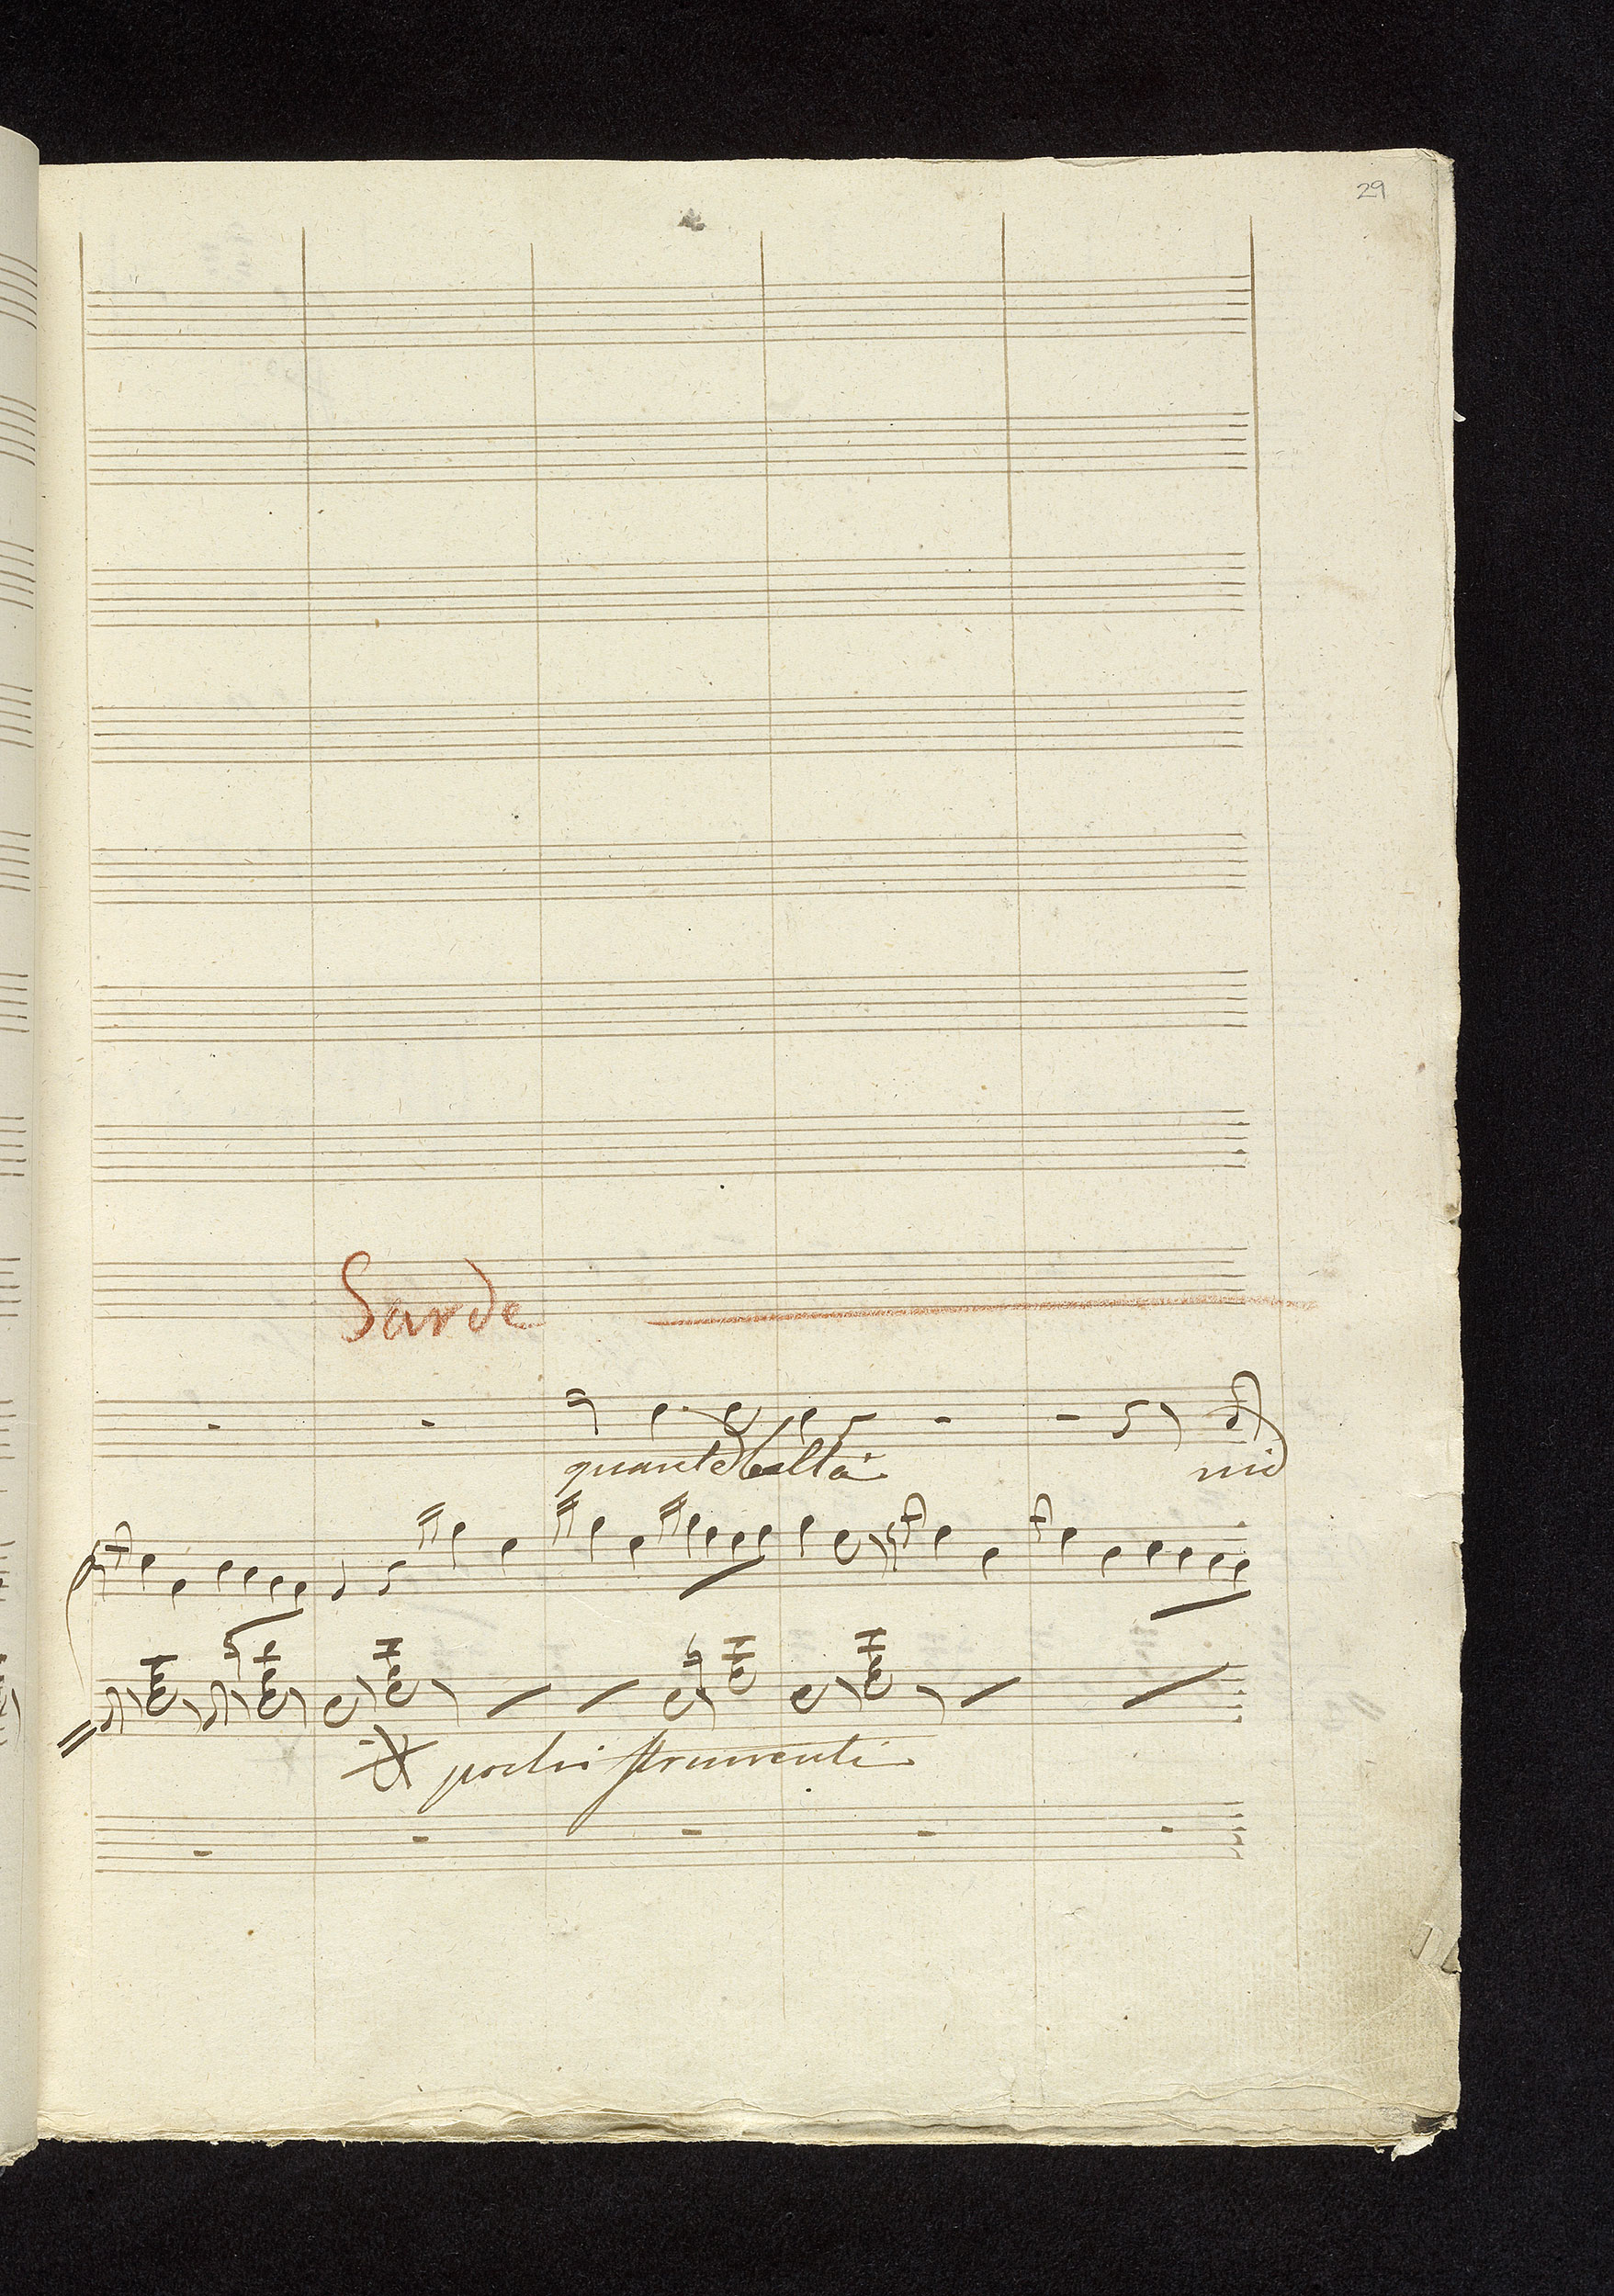 29
Sarde
quante beltà mi
pochi strumenti